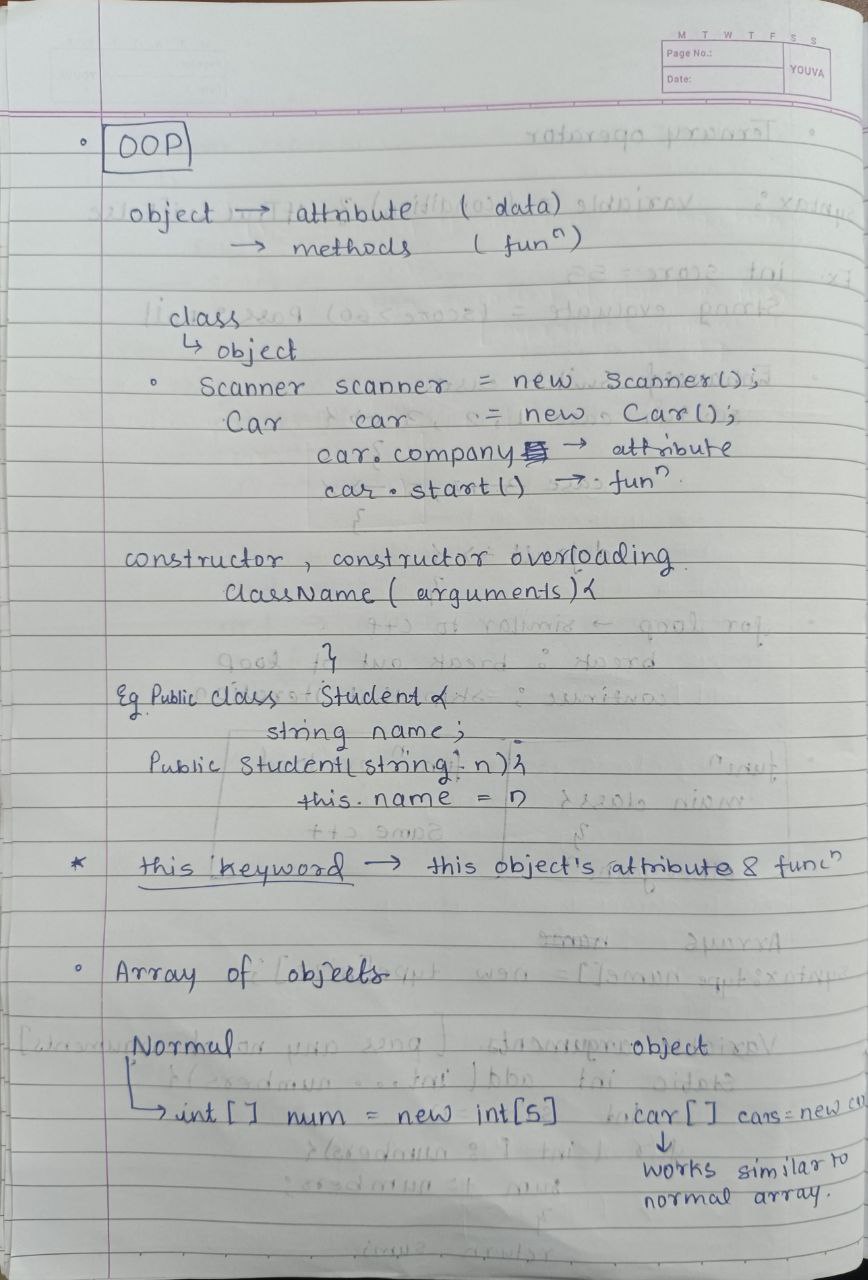 M T W T F S S
Page No.:
YOUVA
Date:
• OOP
object → attribute ( data)
→ methods ( funⁿ)
class
↳ object
• Scanner scanner = new Scanner();
Car car = new Car();
car.company → attribute
car.start() → funⁿ.
constructor , constructor overloading
ClassName ( arguments){
}
Eg. Public class Student {
string name;
Public Student( string n){
this.name = n
* this keyword → this object's attribute & funcⁿ
• Array of objects
Normal object
↳ int[] num = new int[5] car[] cars = new
↓
works similar to
normal array.